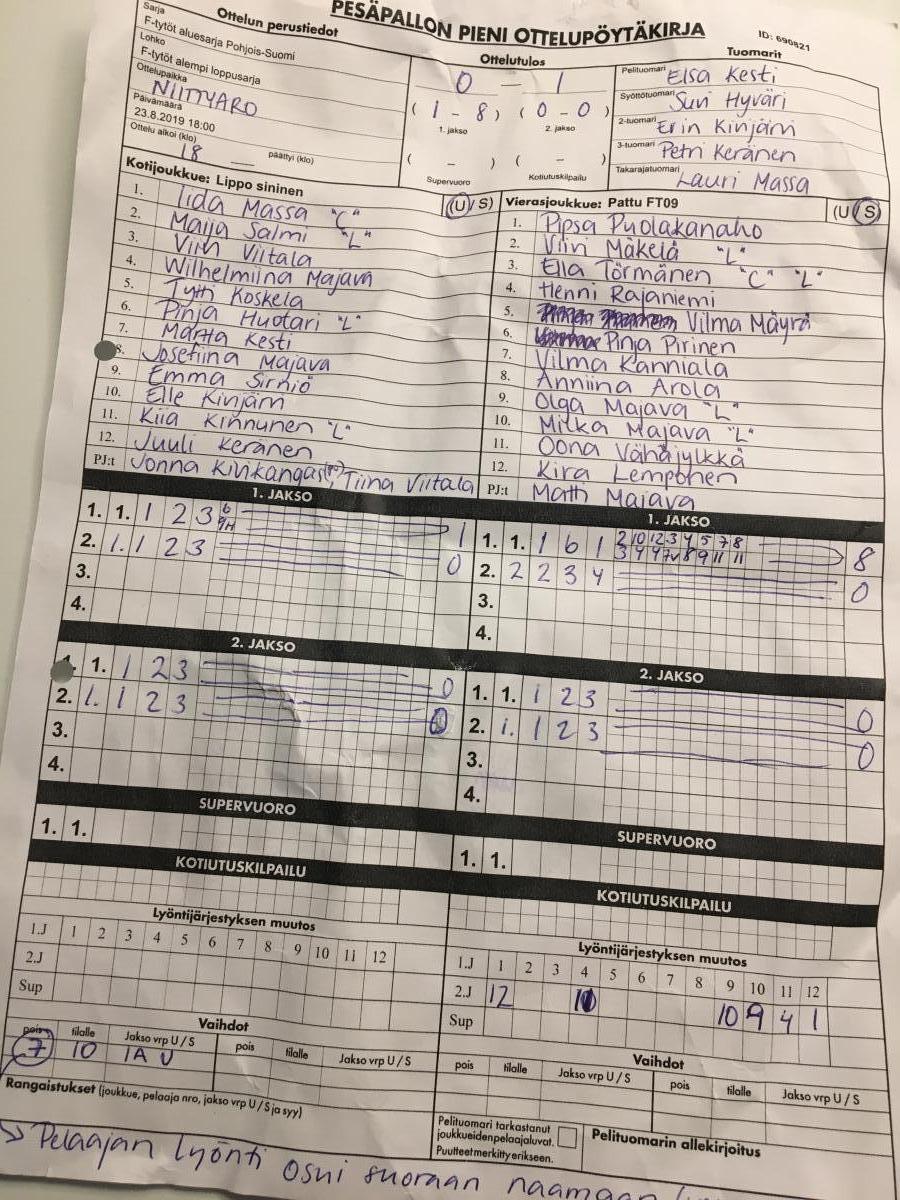 PESÄPALLON PIENI OTTELUPÖYTÄKIRJA
ID: 690821
Ottelun perustiedot
Sarja
F-tytöt aluesarja Pohjois-Suomi
Lohko
F-tytöt alempi loppusarja
Ottelupaikka
NIITTYARO
Päivämäärä
23.8.2019 18:00
Ottelu alkoi (klo) 18 — päättyi (klo)
Ottelutulos
0 — 1
( 1 - 8 ) ( 0 - 0 )
1. jakso 2. jakso
( - ) ( - )
Supervuoro Kotiutuskilpailu
Tuomarit
Pelituomari Elsa Kesti
Syöttötuomari Suvi Hyväri
2-tuomari Erin Kinjärvi
3-tuomari Petri Keränen
Takarajatuomari Lauri Massa
Kotijoukkue: Lippo sininen (U / S)
1. Iida Massa "C"
2. Maija Salmi "L"
3. Viita Viitala
4. Wilhelmiina Majava
5. Tytti Koskela
6. Pinja Huotari "L"
7. Martta Kesti
8. Josefiina Majava
9. Emma Sirniö
10. Elle Kinjärvi
11. Kiia Kinnunen "L"
12. Juuli Keränen
PJ:t Jonna Kivikangas, Tiina Viitala
Vierasjoukkue: Pattu FT09 (U / S)
1. Pipsa Puolakanaho
2. Viivi Mäkelä "L"
3. Ella Törmänen "C" "L"
4. Henni Rajaniemi
5. Vilma Mäyrä
6. Pinja Pirinen
7. Vilma Kanniala
8. Anniina Arola
9. Olga Majava "L"
10. Milka Majava "L"
11. Oona Vähäjylkkä
12. Kira Lempönen
PJ:t Matti Majava
1. JAKSO
1. 1. 1 2 3 6 9H 1
2. 1. 1 2 3 0
3.
4.
1. JAKSO
1. 1. 1 6 1 2 10 12 3 4 5 7 8 8
3 4 4 7v 8 9 11 11
2. 2 2 3 4 0
3.
4.
2. JAKSO
1. 1. 1 2 3 0
2. 1. 1 2 3 0
3.
4.
2. JAKSO
1. 1. 1 2 3 0
2. 1. 1 2 3 0
3.
4.
SUPERVUORO
1. 1.
SUPERVUORO
1. 1.
KOTIUTUSKILPAILU
KOTIUTUSKILPAILU
Lyöntijärjestyksen muutos
1.J 1 2 3 4 5 6 7 8 9 10 11 12
2.J
Sup
Lyöntijärjestyksen muutos
1.J 1 2 3 4 5 6 7 8 9 10 11 12
2.J 12 10 9 4 1
Sup
Vaihdot
pois tilalle Jakso vrp U / S pois tilalle Jakso vrp U / S
7 10 1A U
Vaihdot
pois tilalle Jakso vrp U / S pois tilalle Jakso vrp U / S
Rangaistukset (joukkue, pelaaja nro, jakso vrp U / S ja syy)
Pelituomari tarkastanut
joukkueidenpelaajaluvat.
Puutteet merkitty erikseen.
Pelituomarin allekirjoitus
→ Pelaajan lyönti osui suoraan naamaan